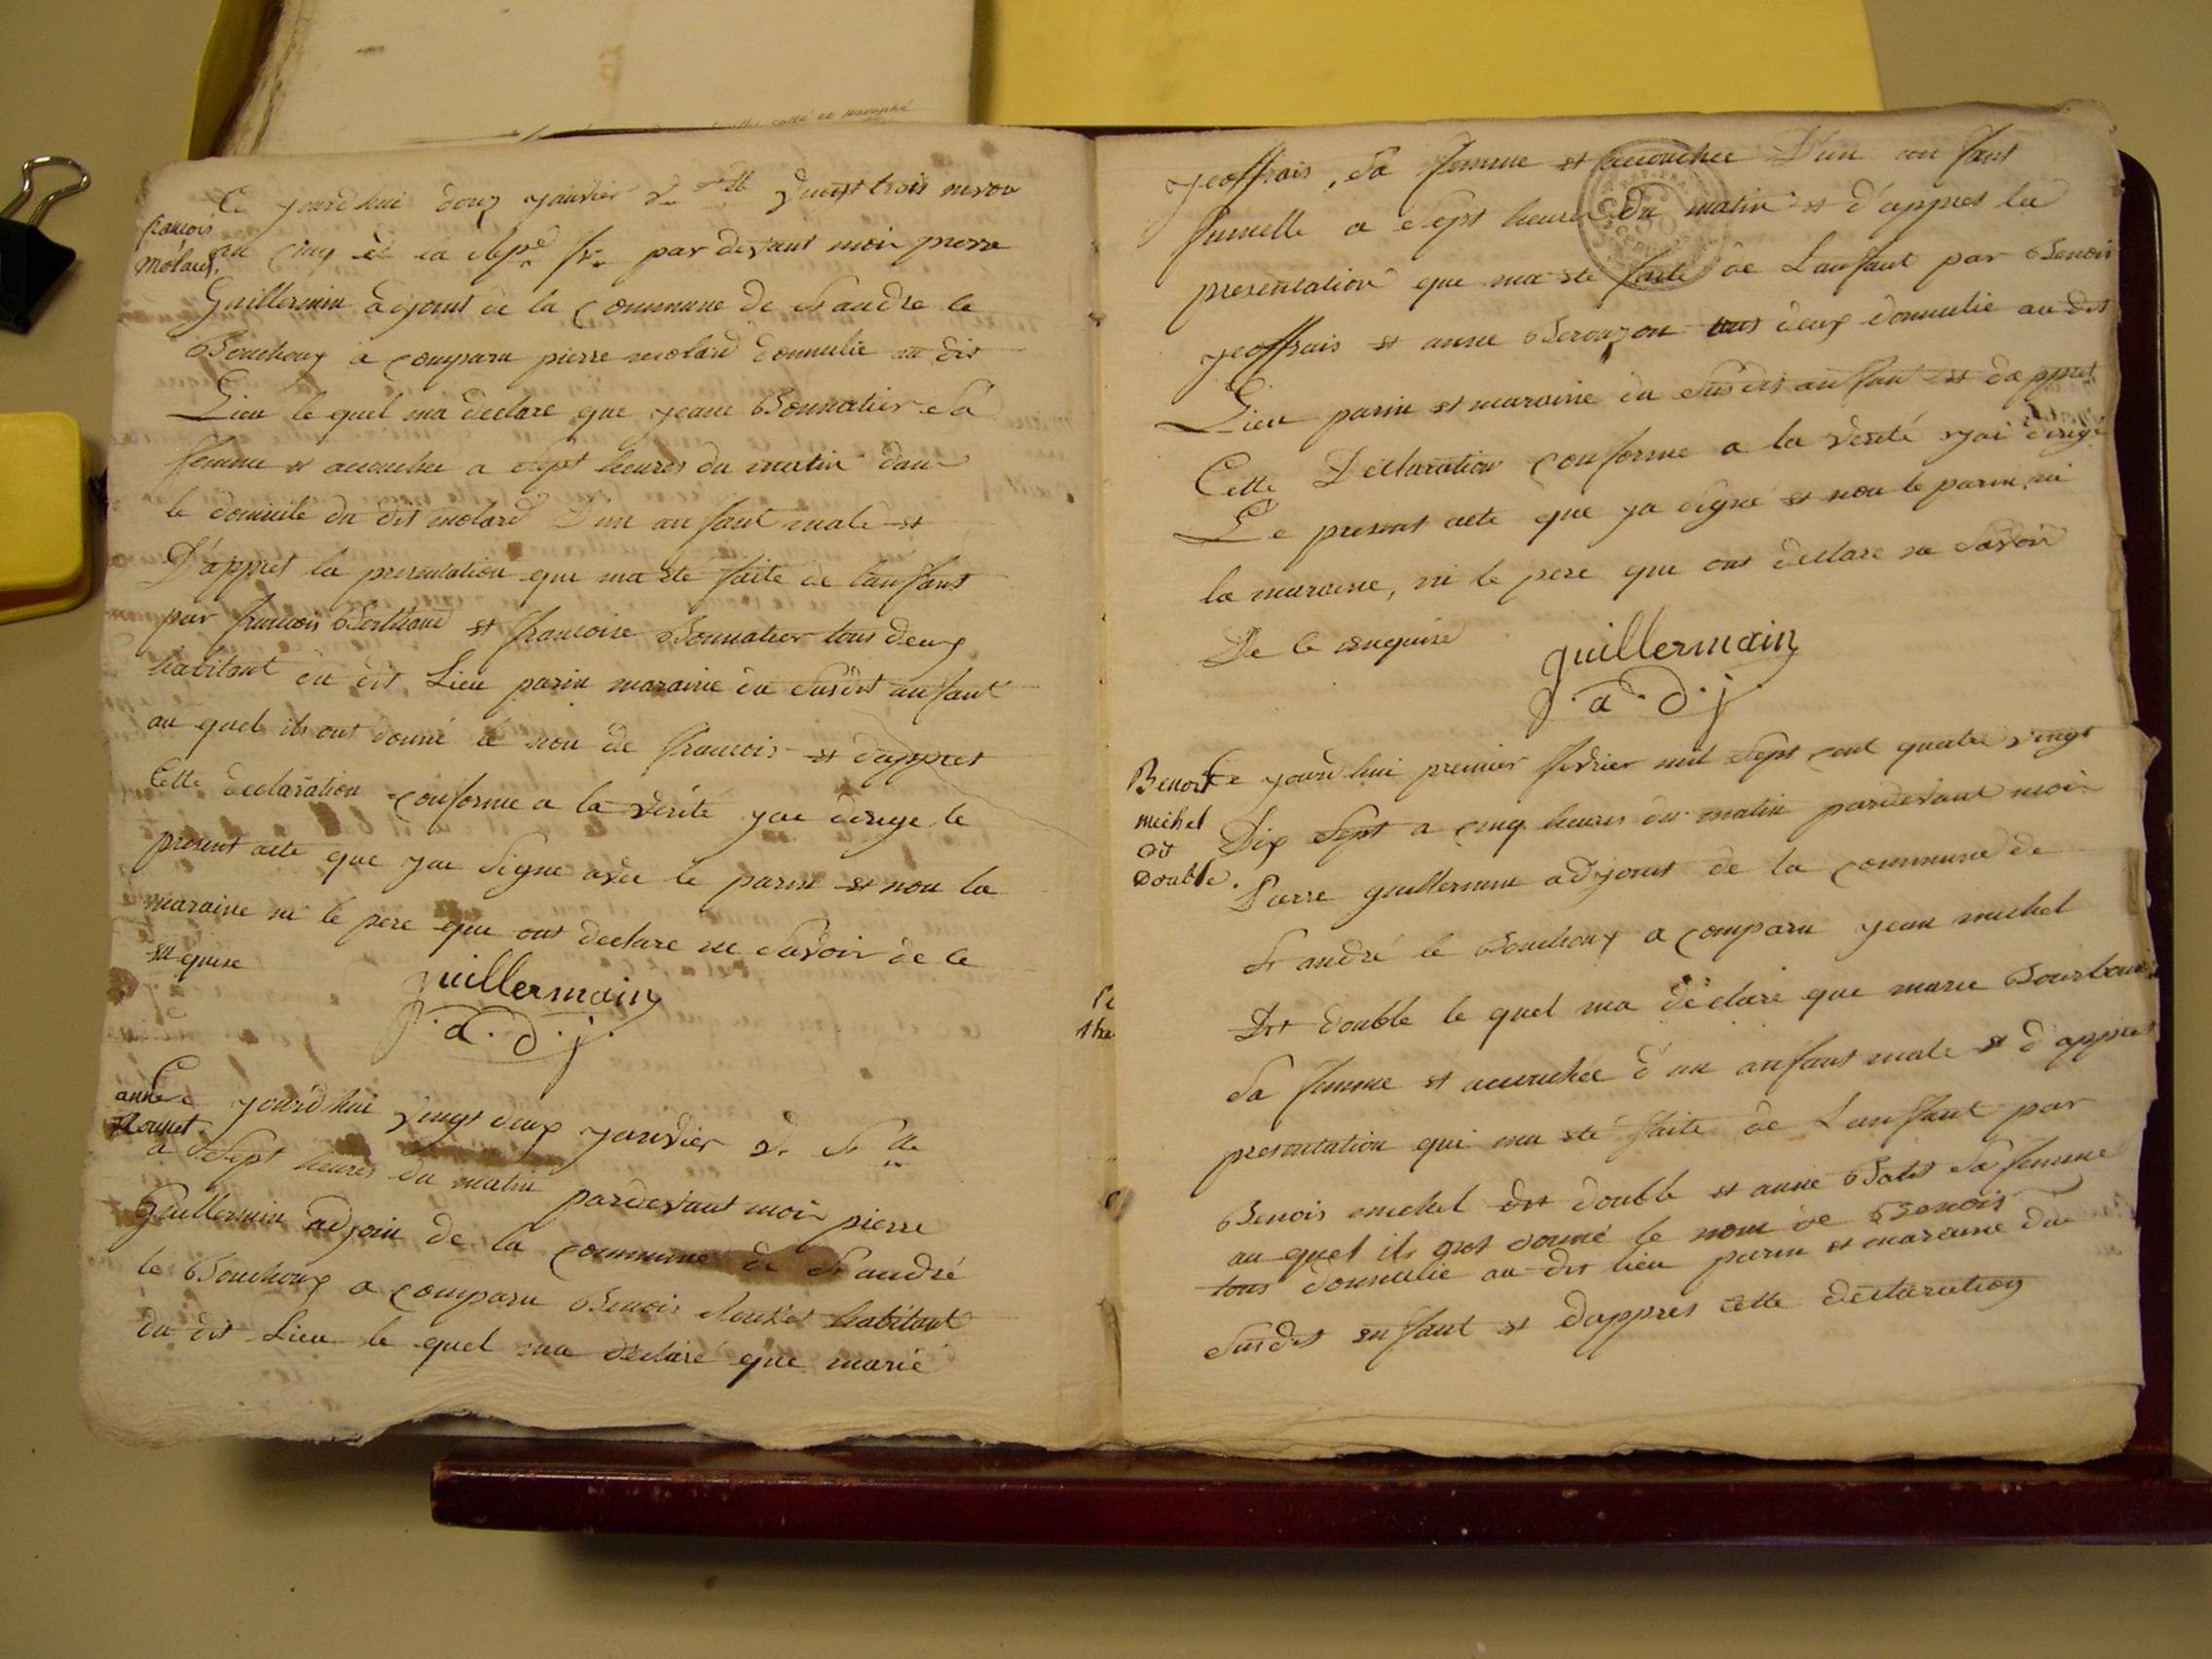 cotté et paraphé
françois
Molard.
Ce jourdhui douz janvier v. stil vingt trois nivou
an cinq de la Repe fr. par devant moi pierre
Guillermin adjoint de la Commune de St andré le
Bouchoux a Comparu pierre molard domulié au dit
Lieu le quel ma declare que jeane Bonnatier Sa
femme et acouchee a sept heures du matin dan
le domicile du dit molard D'un anfant male et
D'appret la presentation que ma ete faite de lanfant
par francois Berthaud et francoise Bonnatier tous deux
habitant du dit Lieu parin maraine du Susdit anfant
au quel ils ont donné le nom de francois et dappret
Cette declaration conforme a la vérité jai dirige le
present acte que jai Signe avec le parin et non la
maraine ni le pere que ont declare ne Savoir de ce
en quise
guillermain
a. d. j.
anne
Rouset
Ce jourdhui vingt deux janvier v. St
a Sept heures du matin pardevant moi pierre
Guillermin adjoin de la Commune de St andré
le Bouchoux a Comparu Benois Rouset habitant
du dit Lieu le quel ma déclaré que marie
jeoffrais, Sa femme et acouchee D'un anfant
fumelle a sept heures du matin et d'appret la
presentation que ma ete faite de Lanfant par Benois
jeoffrais et anne Berouzon tous deux domulie au dit
Lieu parin et maraine du Susdit anfant et dappret
Cette Déclaration Conforme a la verité jai dirigé
Le present acte que ja signé et non le parin, ni
la maraine, ni le pere que ont declare ne Savoir
De ce anquise
guillermain
a. d. j.
Benoit
michel
dit
Double.
Ce jourdhui premier fevrier mil Sept cent quatre vingt
Dix Sept a cinq heures du matin pardevant moi
Pierre guillermin adjoint de la Commune de
St andré le Bouchoux a Comparu jean michel
Dit double le quel ma declaré que marie Bourbon
Sa femme et acouchée d'un anfant male et d'appret
presentation qui ma eté faite de Lanfant par
Benois michel dit double et anne Batit Sa femme
au quel ils ont donné le nom de Benois
tous domulie au dit lieu parin et maraine du
Susdit enfant et dappres cette declaration